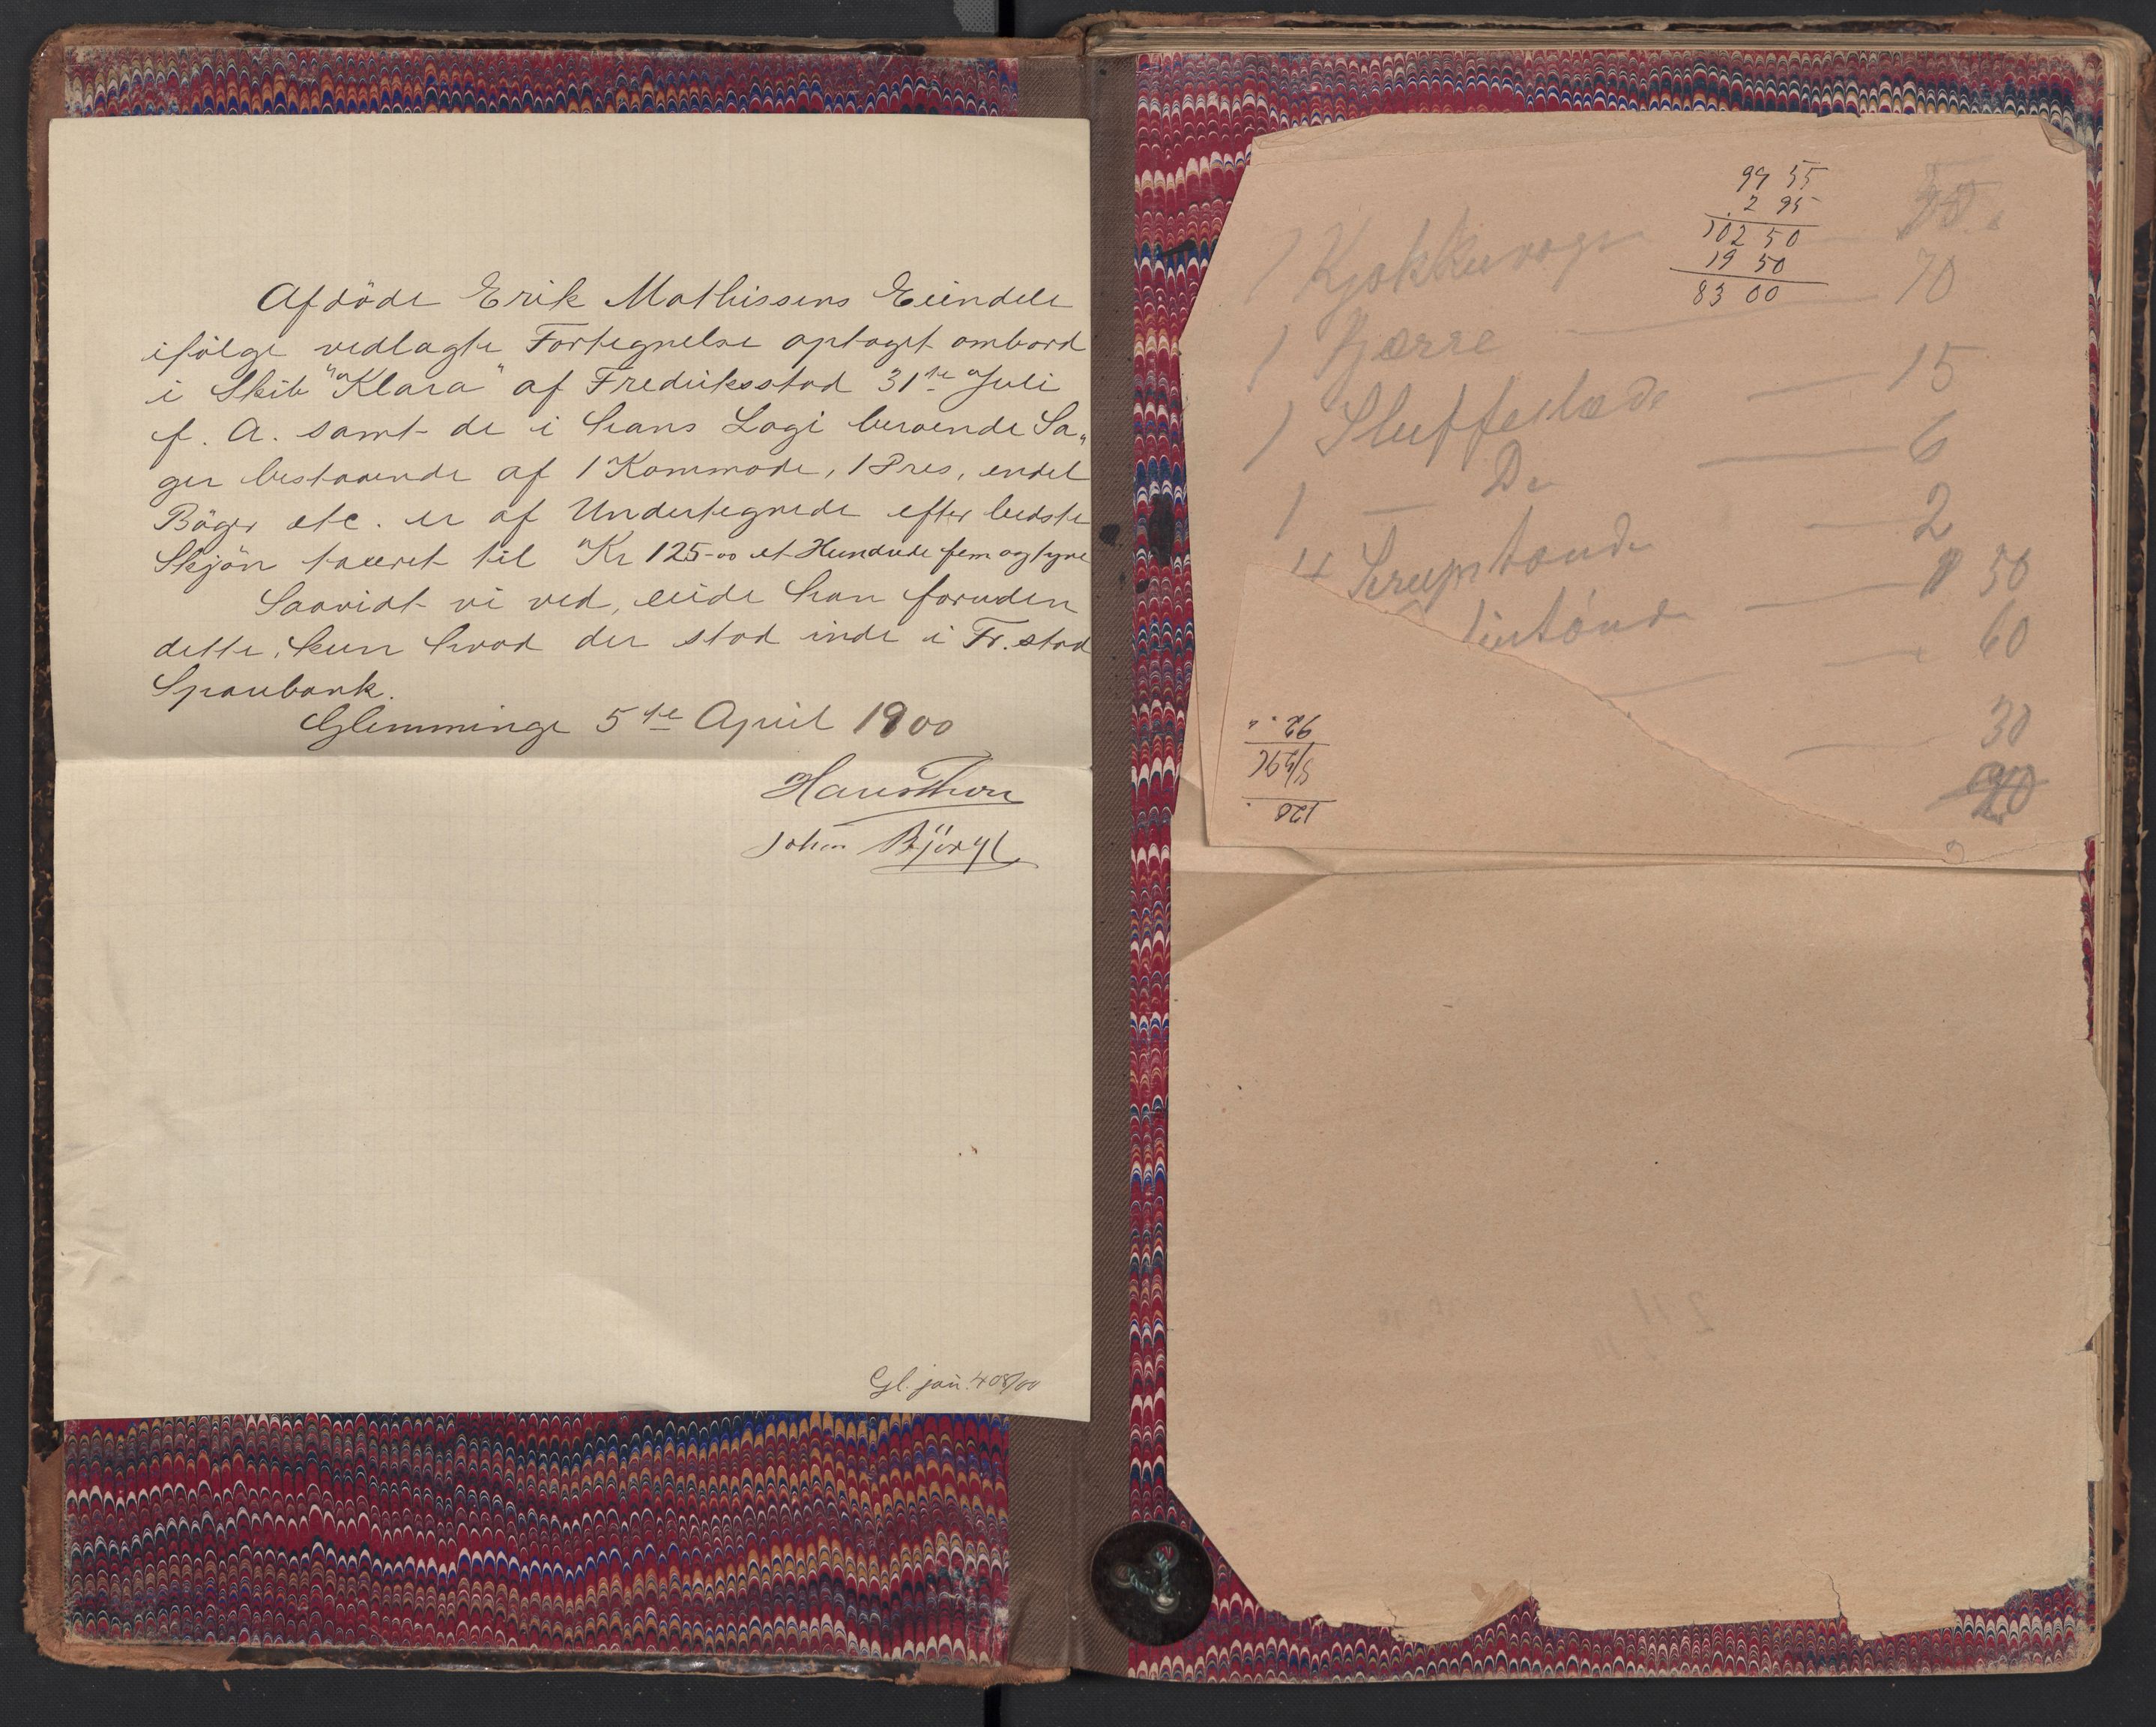 Afdöde Erik Mathissens Eiendele
ifölge vedlagte Fortegnelse optaget ombord
i Skib "Klara" af Fredriksstad 31te Juli
f. A. samt de i hans Logi beroende Sa„
ger bestaaende af 1 Kommode, 1 Pres, endel
Böger etc. er af Undertegnede efter bedste
Skjön taxeret til Kr 125-00 et Hundrede fem og tyve
Saavidt vi ved, eiede han foruden
dette, kun hvad der stod inde i Fr.stad
Sparebank.
Glemminge 5te April 1900
Hans Thon
John
Gl. jour. 408/00
99 55
2 95
102 50
19 50
83 00
1
70
1 Kjærre
15
1 Sluffeslæde
6
1 — Do
2
4
50
60
30
20
92
120